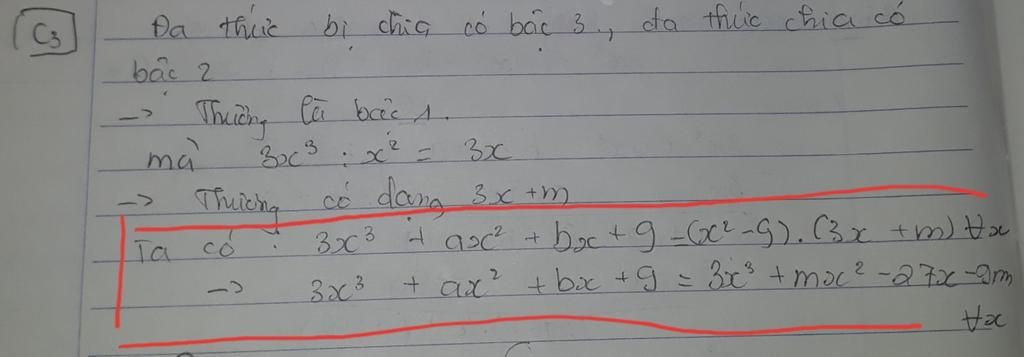 C3
Đa thức bị chia có bậc 3, đa thức chia có
bậc 2
-> Thương là bậc 1.
mà 3x³ : x² = 3x
-> Thương có dạng 3x + m
Ta có : 3x³ + ax² + bx + 9 = (x² - 9). (3x + m) ∀x
-> 3x³ + ax² + bx + 9 = 3x³ + mx² - 27x - 9m
∀x